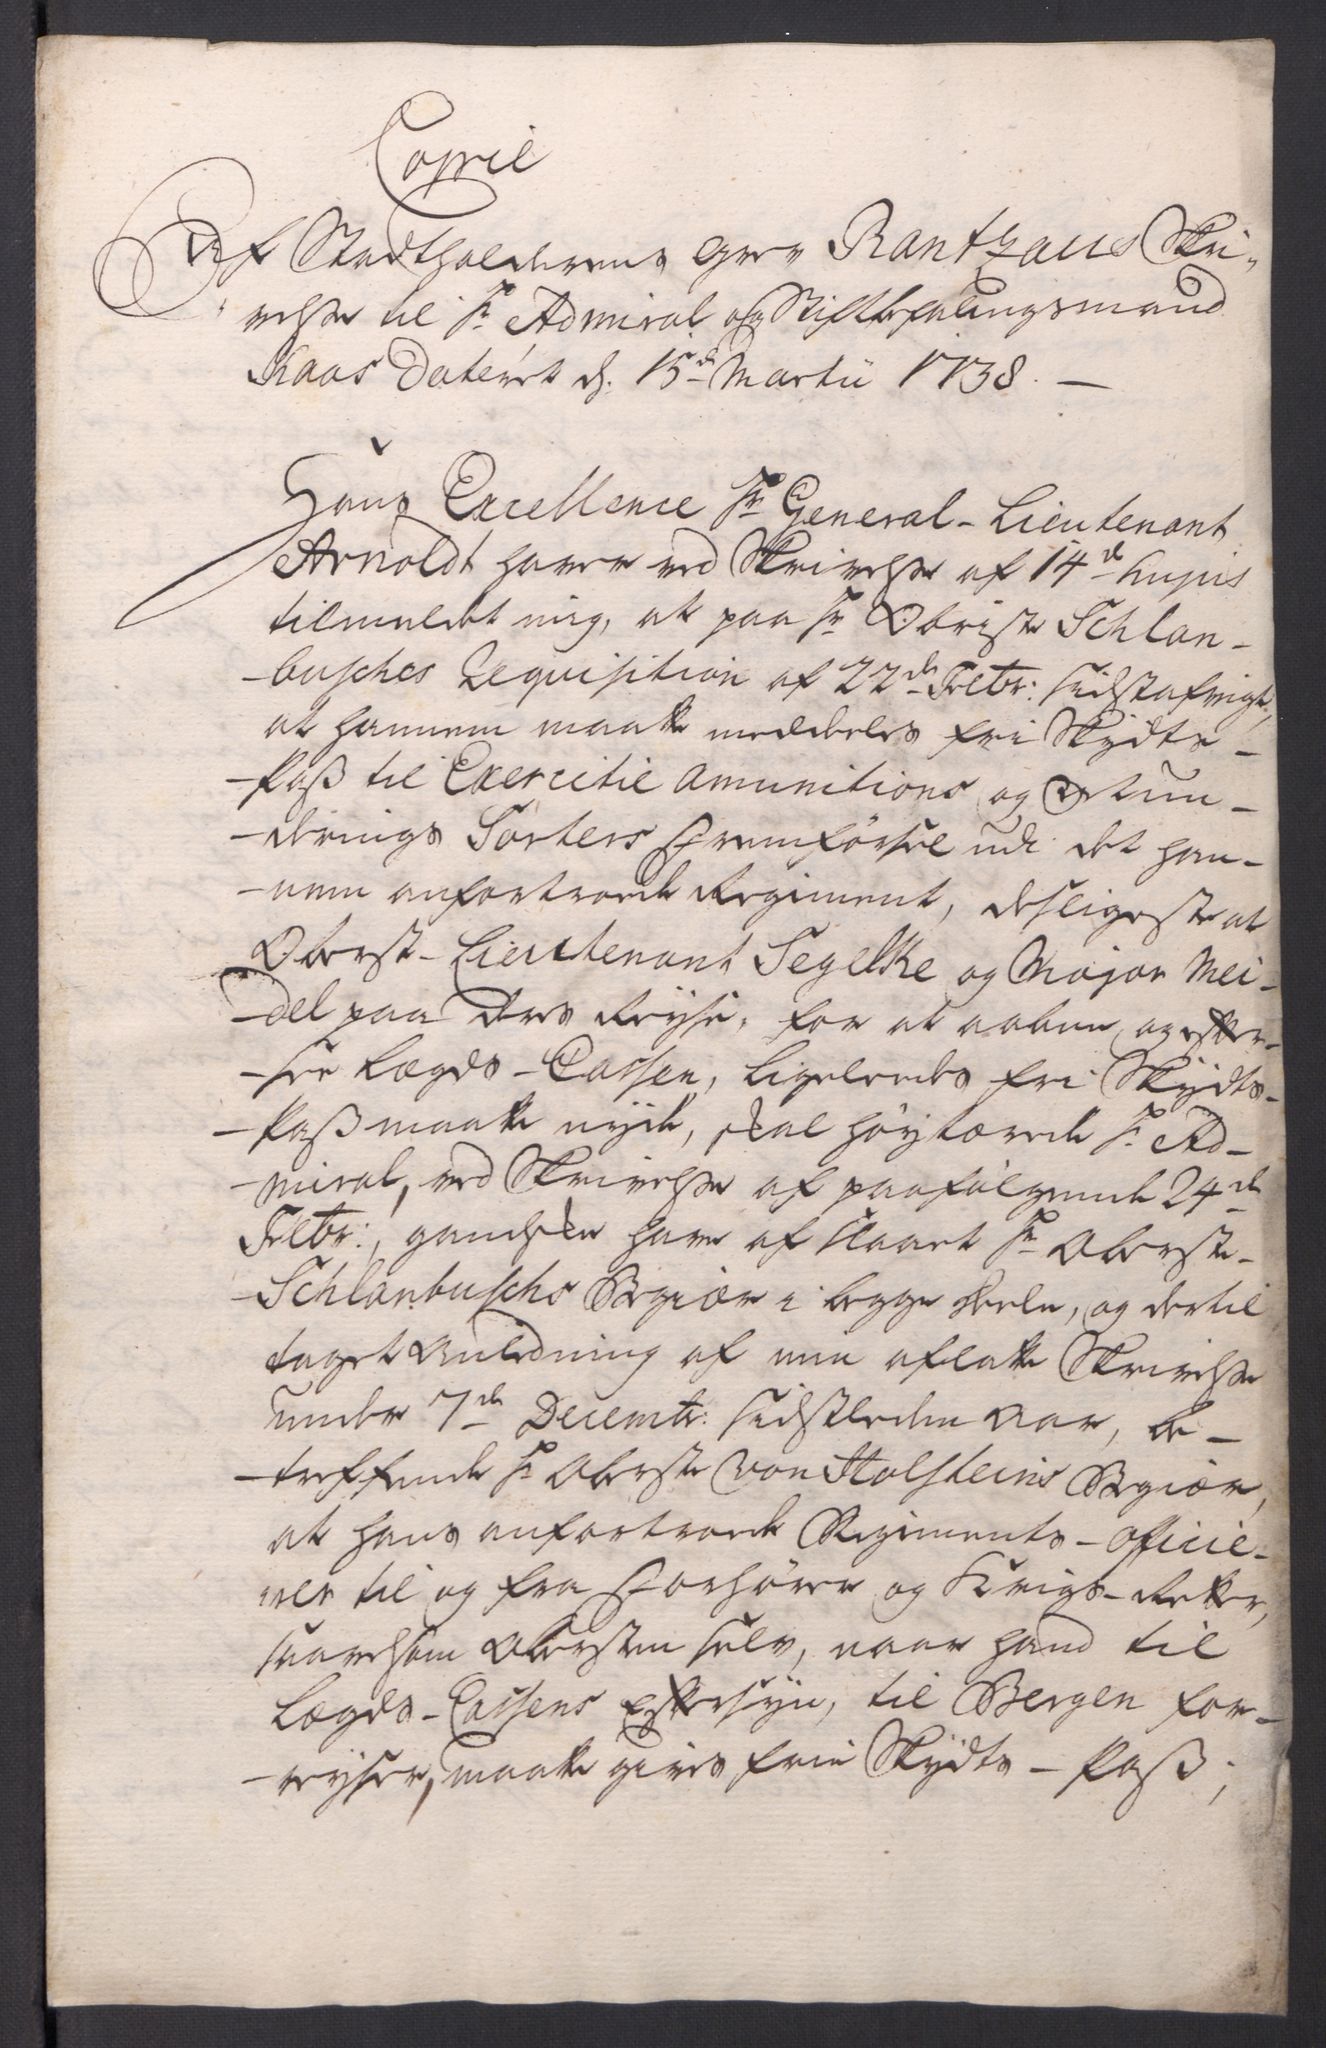 Copie
Af Stadtholderens Grev Rantzaus Skri-
velse til Hr Admiral og Stiftbefalingsmand
Kaas Dateret d. 15de Martii 1738. —
Hans Excellence Hr General-Lieutenant
Arnoldt haver ved Skrivelse af 14de hujus
tilmeldet mig, at paa Hr Obriste Schlan-
-busches Requisition af 22de Febr: sidstafvigt,
at hannem maatte meddeles fri Skydts-
-Pass til Exercitie Amunitions og
-derings Sorters Fremførsel udi det han-
-nem anfortroede Regiment, desligeste at
Oberst-Lieutenant Segelke og Major Mei-
-del paa deres Reyse, for at aabne og efter-
-see Lægds-Cassen, ligeleedes fri Skydts-
-Pass maatte nyde, skal høytærede Hr Ad-
-miral, ved Skrivelse af paafølgende 24de
Febr:, gandske have afslaaet Hr Oberste
-Schlanbuschs Begiær i begge Deele, og dertil
taget Anledning af min afladte Skrivelse
under 7de Decembr: sidstleden Aar, be-
-treffende Hr Oberste von Holsteins Begiær,
at hans anfortroede Regiments-Officie-
rer til og fra Forhører og Krigs-Retter,
saavelsom Obersten selv, naar hand til
Lægds-Cassens Eftersyn, til Bergen for-
-reyser, maatte gives frie Skydts-Pass;